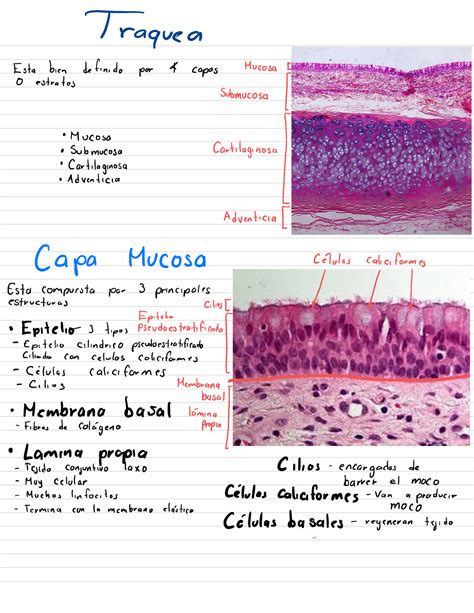 Traquea
Esta bien definido por 4 capas
O estratos
• Mucosa
• Submucosa
• Cartilaginosa
• Adventicia
Mucosa
Submucosa
Cartilaginosa
Adventicia
Capa Mucosa
Esta compuesta por 3 principales
estructuras
• Epitelio 3 tipos
- Epitelio cilindrico pseudoestratificado
Ciliado con celulas caliciformes
- Células caliciformes
- Cilios
• Membrana basal
- Fibras de colágeno
• Lamina propia
- Tejido conjuntivo laxo
- Muy celular
- Muchos linfocitos
- Termina con la membrana elástica
Células caliciformes
Cilios
Epitelio
Pseudoestratificado
Membrana
basal
lámina
Propia
Cilios - encargados de
barrer el moco
Células caliciformes - Van a producir
moco
Células basales - regeneran tejido